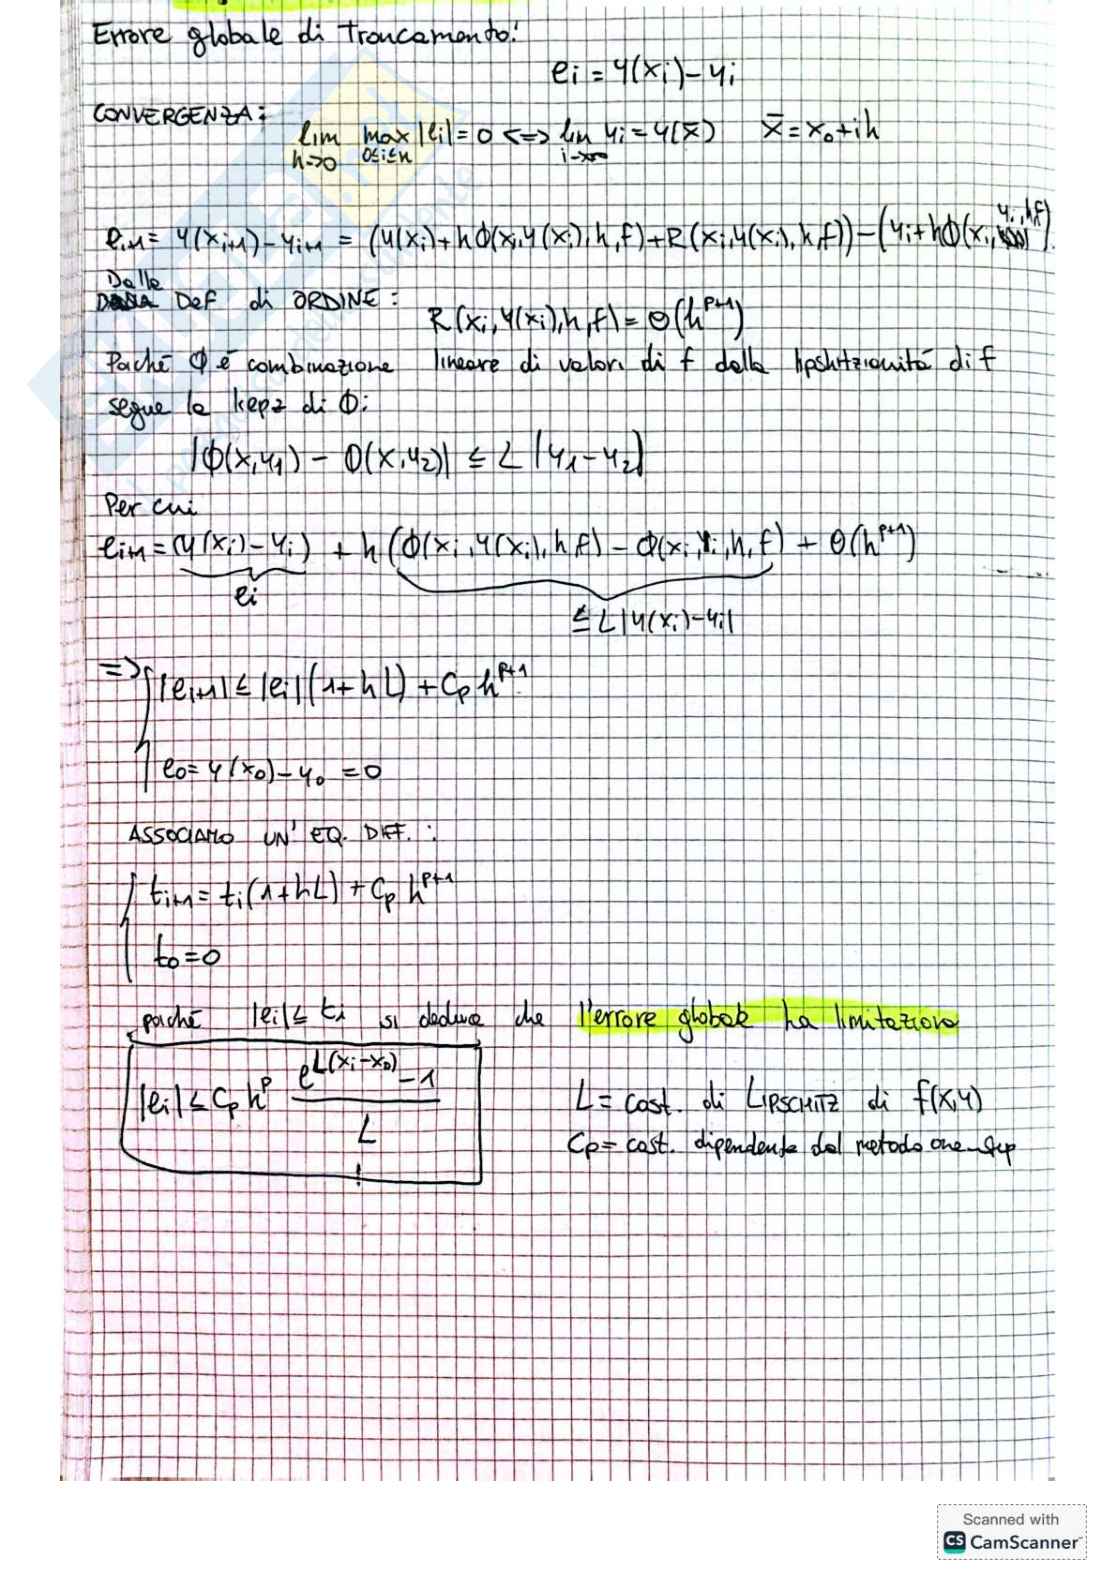 Errore globale di troncamento:
ei = y(xi) - yi
CONVERGENZA:
lim h->0 max 0≤i≤n |ei| = 0 <=> lim i->∞ yi = y(x̄)   x̄ = x0 + ih
ei+1 = y(xi+1) - yi+1 = (y(xi) + hΦ(xi, y(xi), h, f) + R(xi, y(xi), h, f)) - (yi + hΦ(xi, yi, h, f))
Dalla
Def di ORDINE: R(xi, y(xi), h, f) = O(h^p+1)
Poiché Φ è combinazione lineare di valori di f dalla lipshitzianità di f
segue la di Φ:
|Φ(x,y1) - Φ(x,y2)| ≤ L |y1 - y2|
Per cui
ei+1 = (y(xi) - yi) + h(Φ(xi, y(xi), h, f) - Φ(xi, yi, h, f) + O(h^p+1)
ei
≤ L|y(xi) - yi|
=> |ei+1| ≤ |ei|(1 + hL) + Cp h^p+1
e0 = y(x0) - y0 = 0
ASSOCIAMO UN' EQ. DIFF.:
ti+1 = ti(1 + hL) + Cp h^p+1
t0 = 0
poiché |ei| ≤ ti si deduce che l'errore globale ha limitazione
|ei| ≤ Cp h^p (e^L(xi-x0) - 1) / L
L = cost. di LIPSCHITZ di f(x,y)
Cp = cost. dipendente dal metodo one-step
Scanned with
CS CamScanner